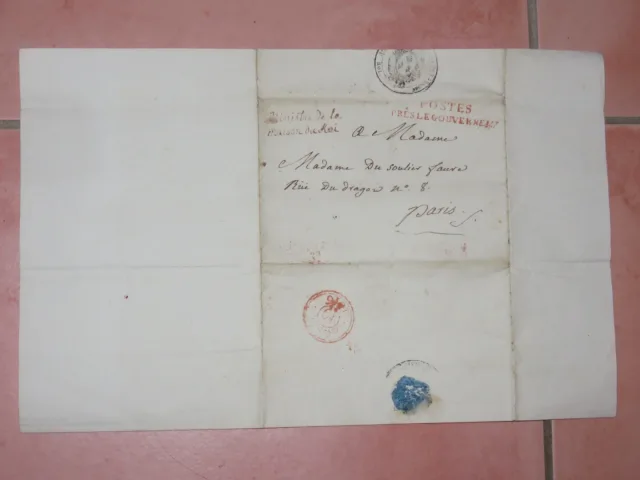 POSTES
PRÈS LE GOUVERNEMT
Ministre de la
Maison du Roi
A Madame
Madame Du soulier faure
Rue Du dragon n°. 8.
paris